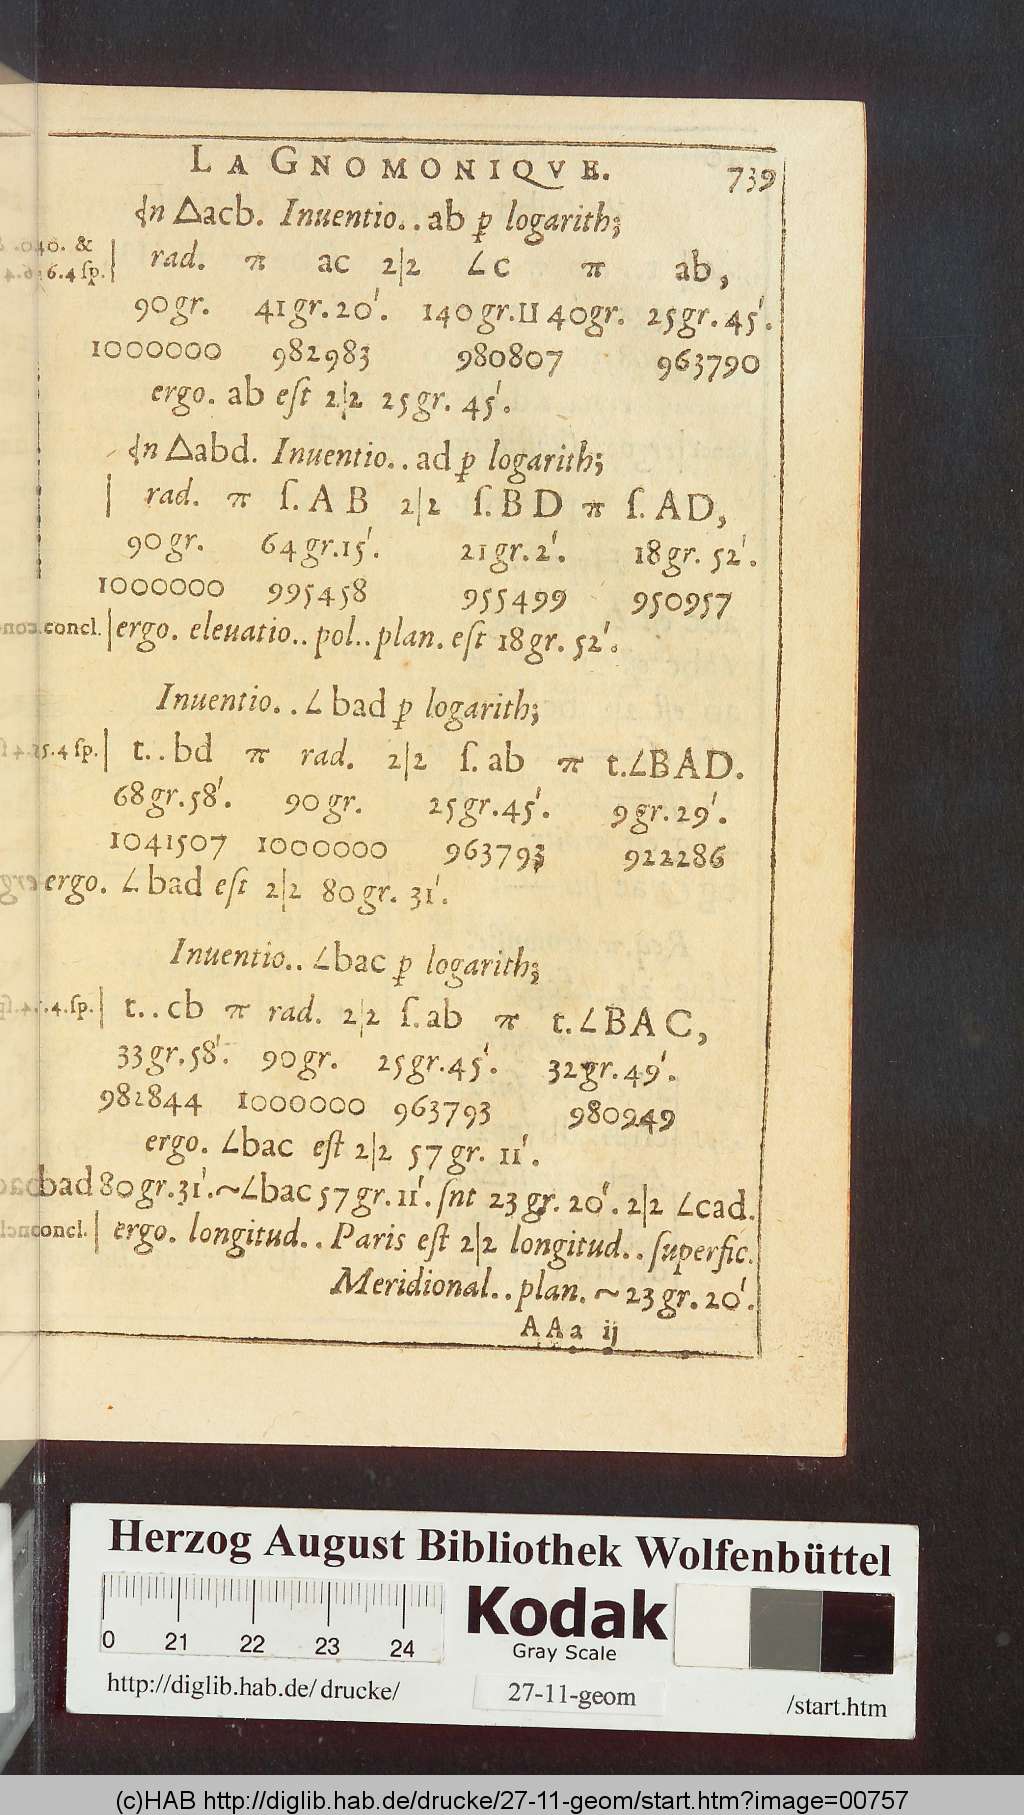 LA GNOMONIQVE. 739
In △acb. Inuentio.. ab p logarith;
rad. π ac 2|2 ∠c π ab,
90gr. 41gr.20'. 140gr.II 40gr. 25gr.45'.
1000000 982983 980807 963790
ergo. ab eſt 2|2 25gr. 45'.
In △abd. Inuentio.. ad p logarith;
rad. π ſ. A B 2|2 ſ. B D π ſ. AD,
90gr. 64gr.15'. 21gr.2'. 18gr. 52'.
1000000 995458 955499 950957
concl. | ergo. eleuatio.. pol.. plan. eſt 18gr. 52'.
Inuentio.. ∠ bad p logarith;
t.. bd π rad. 2|2 ſ. ab π t.∠BAD.
68gr.58'. 90gr. 25gr.45'. 9gr.29'.
1041507 1000000 963793 922286
ergo. ∠ bad eſt 2|2 80gr. 31'.
Inuentio.. ∠bac p logarith;
t.. cb π rad. 2|2 ſ. ab π t. ∠BAC,
33gr.58'. 90gr. 25gr.45'. 32gr.49'.
982844 1000000 963793 980949
ergo. ∠bac eſt 2|2 57gr. 11'.
bad 80gr.31'.~∠bac 57gr.11'. ſnt 23gr. 20'. 2|2 ∠cad.
concl. | ergo. longitud.. Paris eſt 2|2 longitud.. ſuperfic.
Meridional.. plan. ~ 23gr. 20'.
AAa ij
Herzog August Bibliothek Wolfenbüttel
0 21 22 23 24
Kodak
Gray Scale
http://diglib.hab.de/drucke/ 27-11-geom /start.htm
(c)HAB http://diglib.hab.de/drucke/27-11-geom/start.htm?image=00757